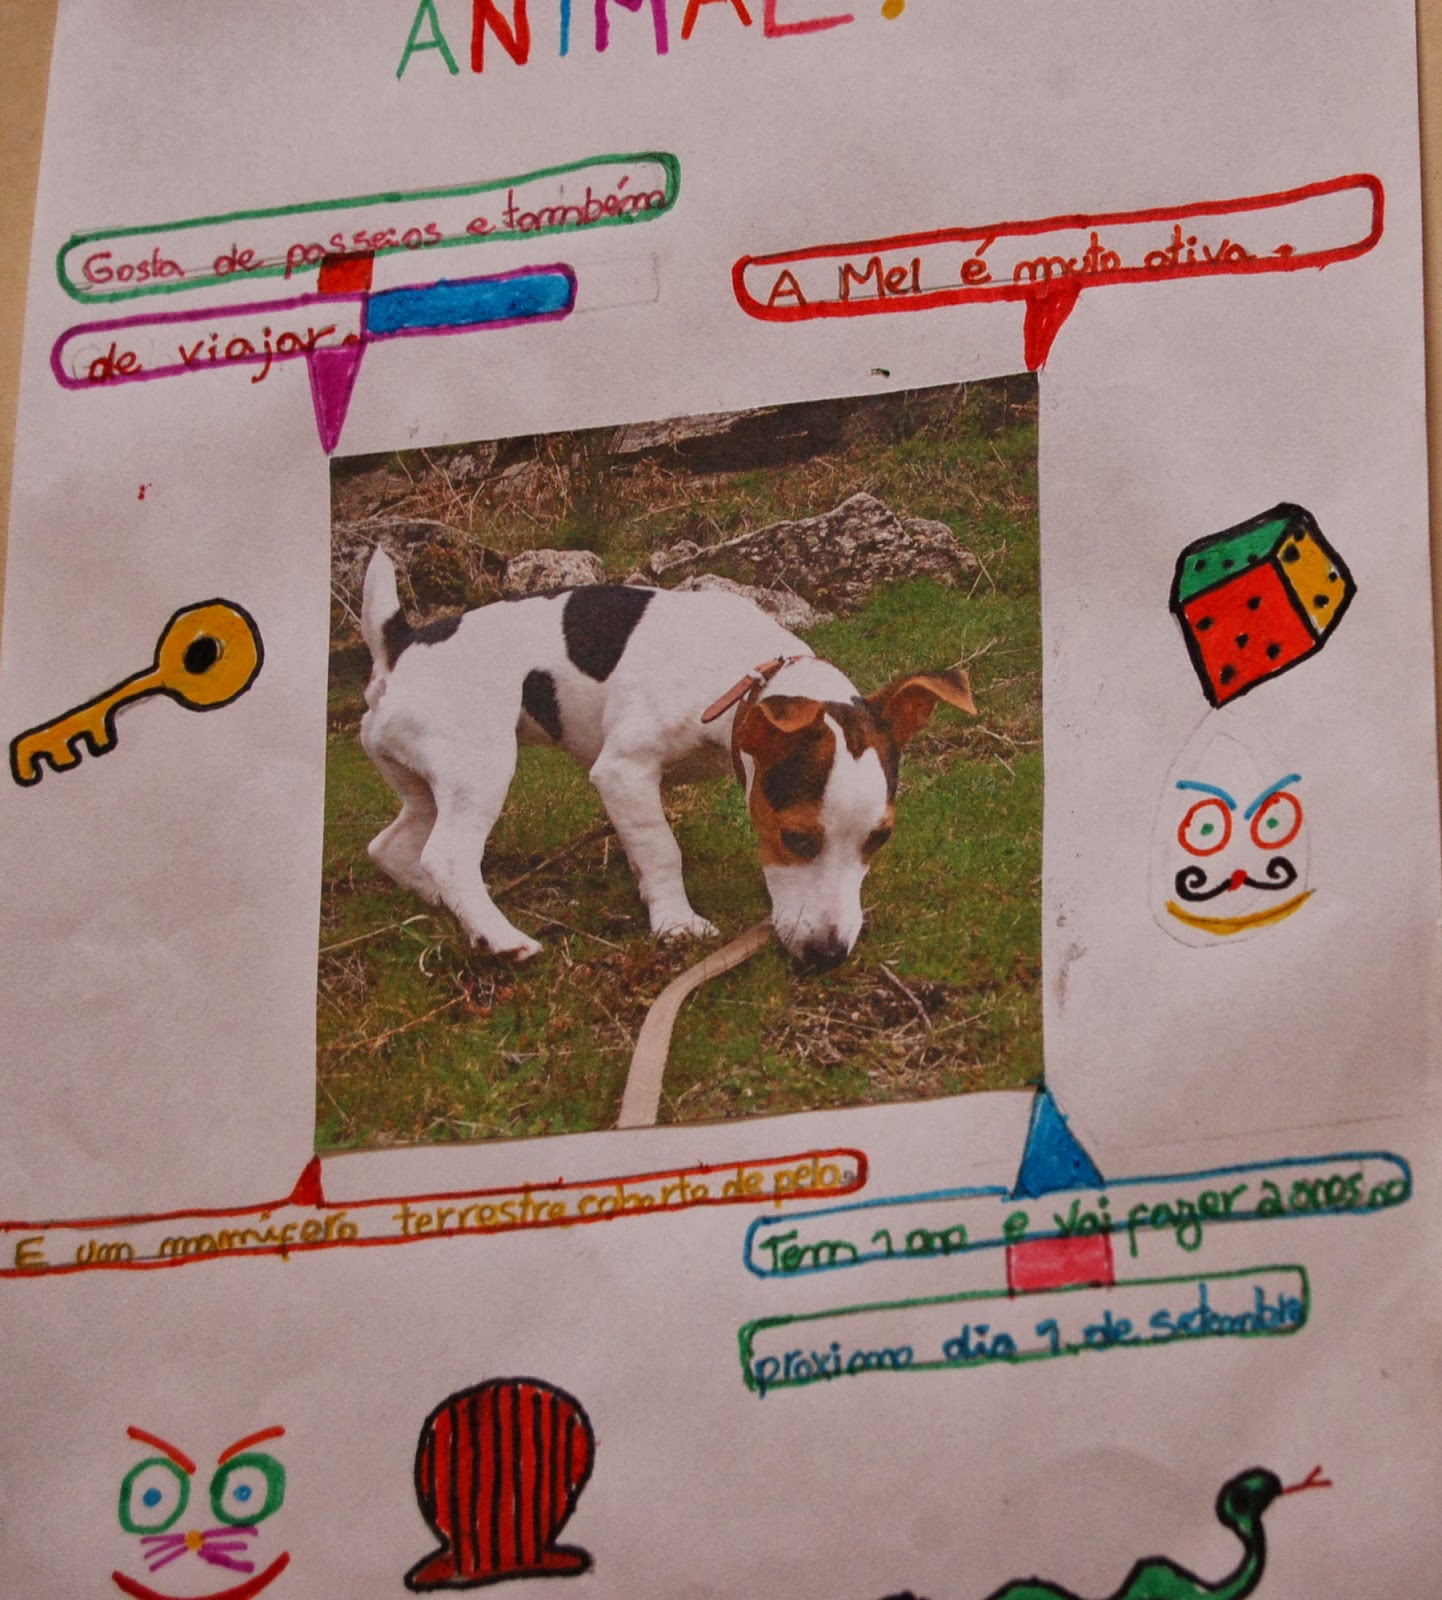 ANIMAL!
Gosta de passeios e também
de viajar.
A Mel é muito ativa.
E um mamífero terrestre coberto de pelo.
Tem 1 ano e vai fazer 2 anos no
próximo dia 1 de setembro